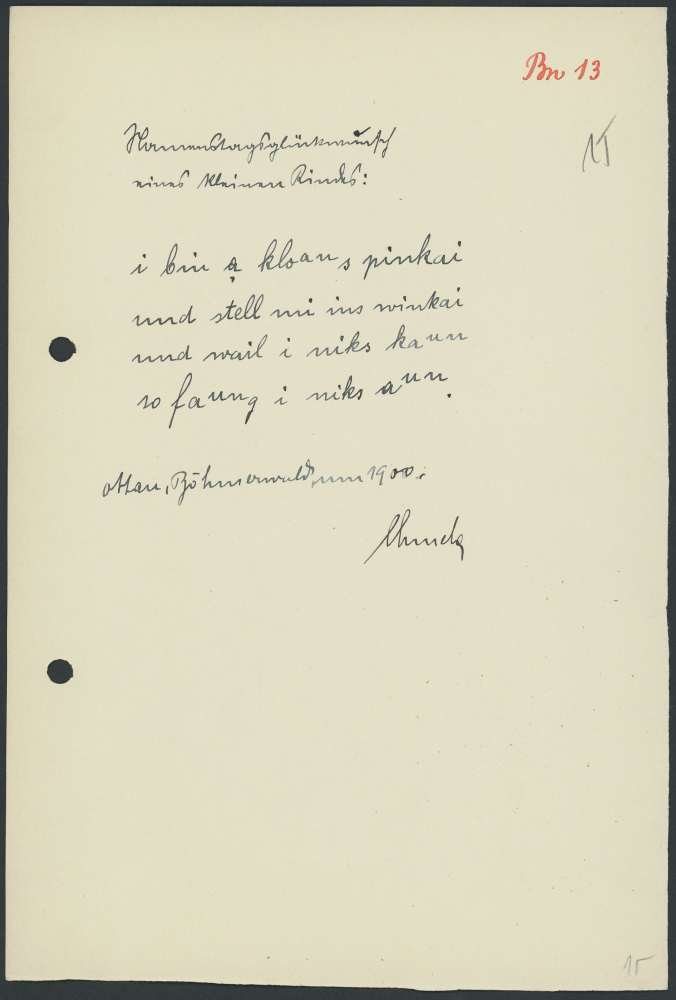 Bn 13
15
Namenstagsglückwunsch
eines kleinen Kindes:
i bin a kloans pinkai
und stell mi ins winkai
und wail i niks kaun
so faung i niks aun.
Ottau, Böhmerwald, um 1900.
15